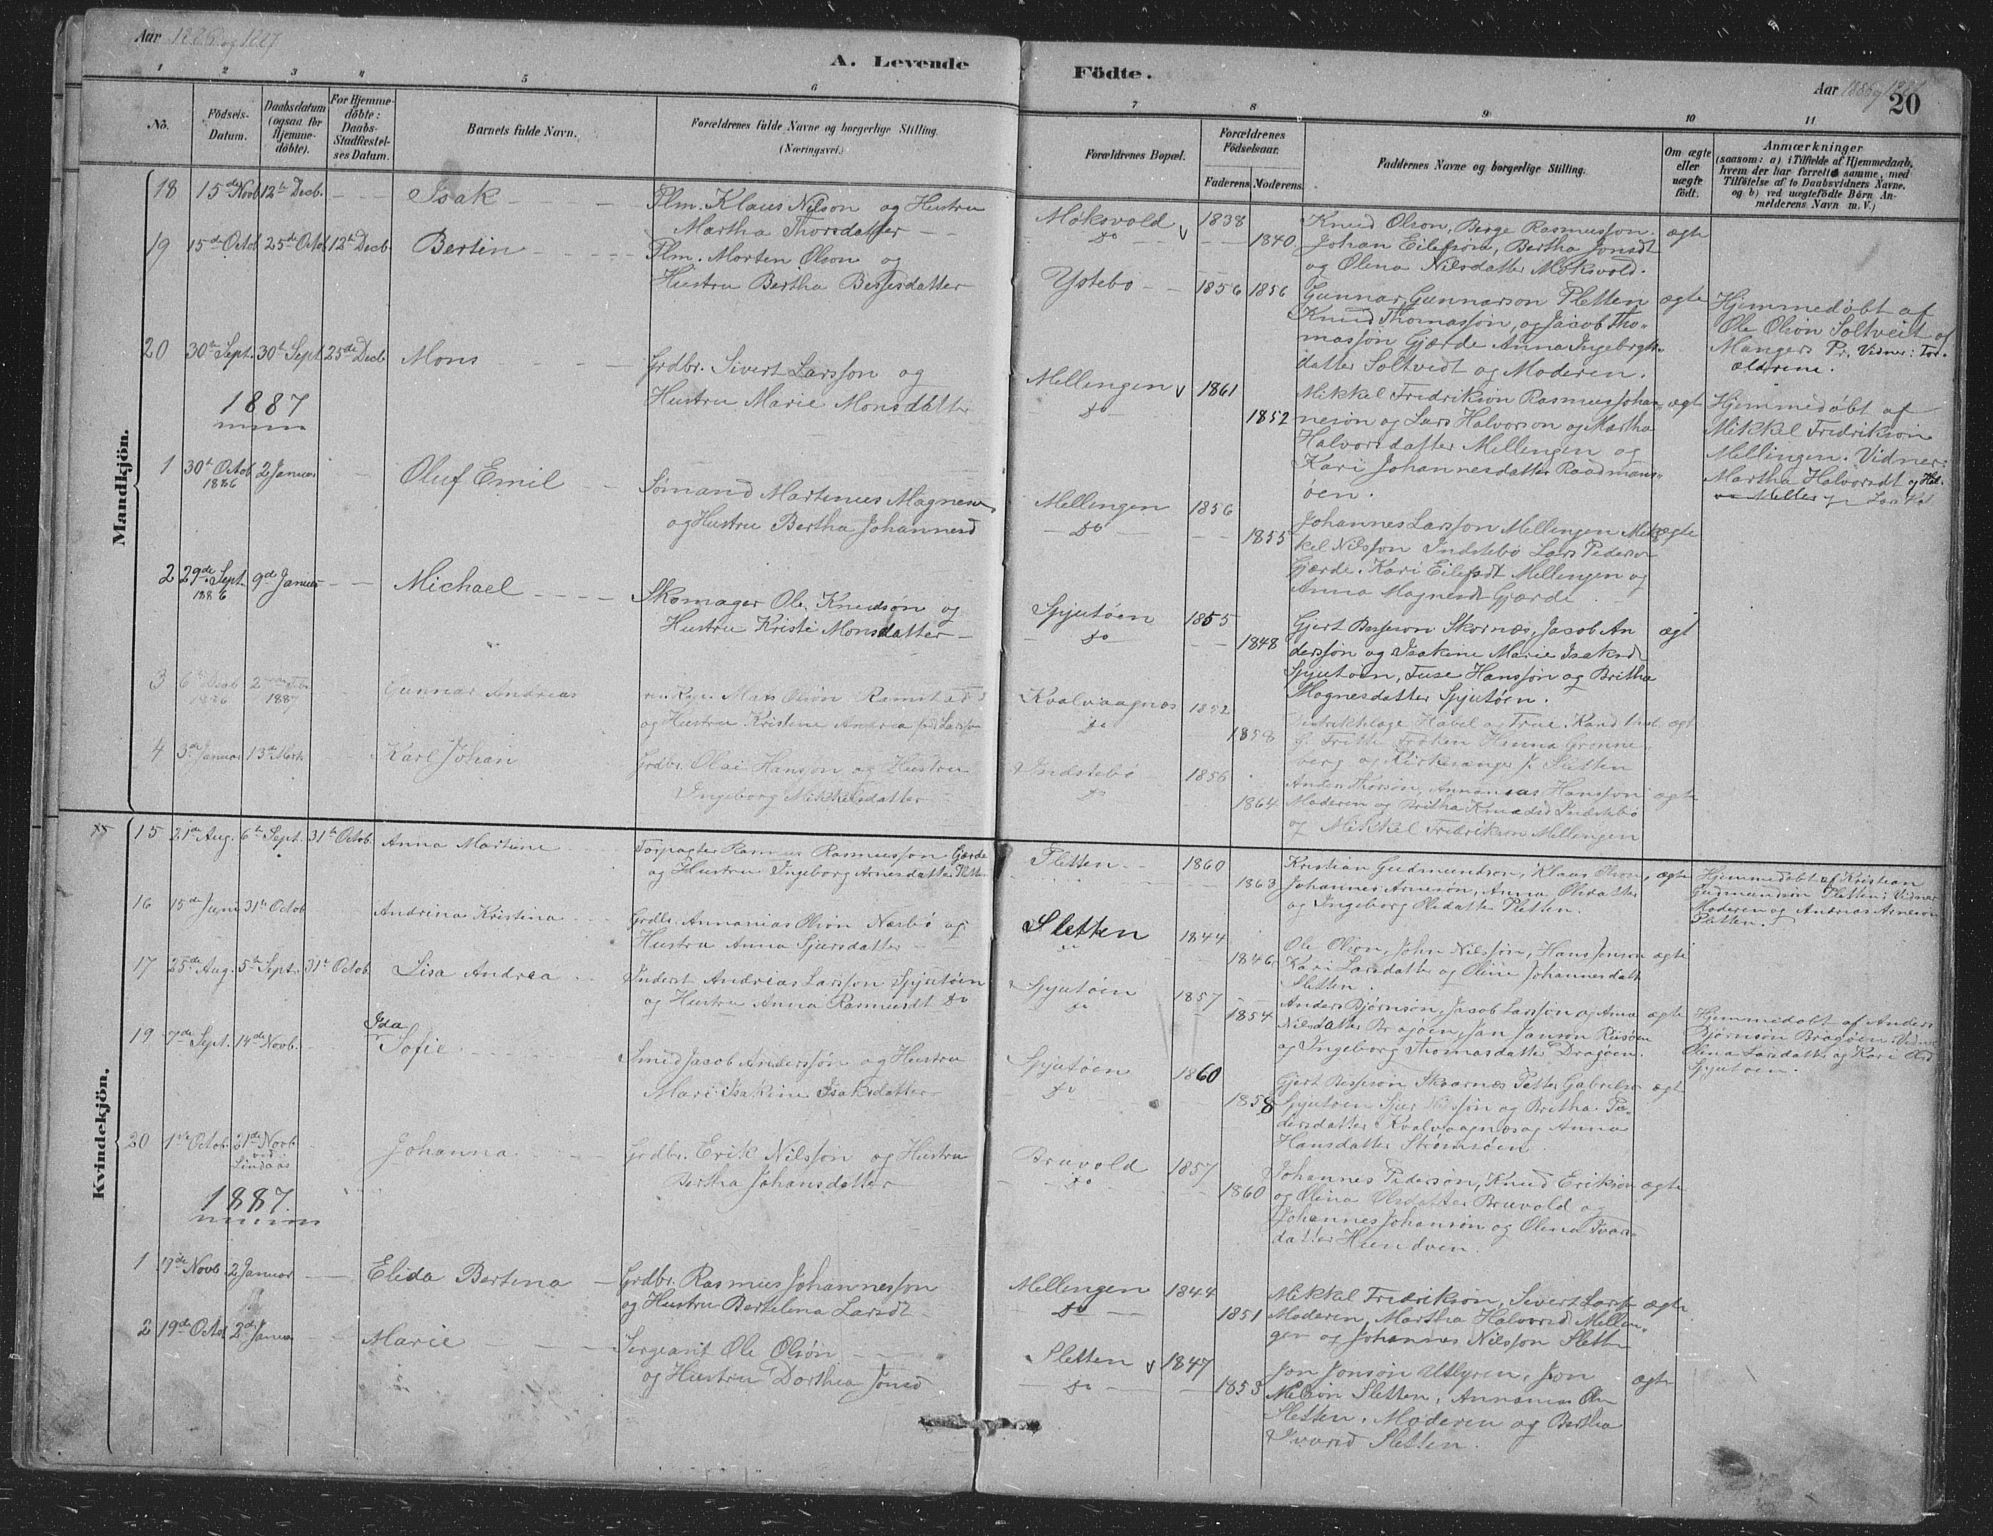 Aar 1886 og 1887
A. Levende Födte.
Aar 1886 og 1887
20
1 2 3 4 5 6 7 8 9 10 11
No.
Födsels-Datum.
Daabsdatum (ogsaa for Hjemme-döbte).
For Hjemme-döbte: Daabs-Stadfæstel-ses Datum.
Barnets fulde Navn.
Forældrenes fulde Navne og borgerlige Stilling.
(Næringsvei.)
Forældrenes Bopæl.
Forældrenes Födselsaar.
Faderens. Moderens.
Faddernes Navne og borgerlige Stilling.
Om ægte eller uægte födt.
Anmærkninger
(saasom: a) i Tilfælde af Hjemmedaab, hvem der har forrettet samme, med Tilföielse af to Daabsvidners Navne, og b) ved uægtefödte Börn An-melderens Navn m. V.)
Mandkjön.
18 15de Novb 12te Decb. Isak Plm. Klaus Nilson og Hustru
Martha Thorsdatter
Møksvold 1838
do 1840
Knud Olson, Berge Rasmusson. ægte
Johan Eilefson, Bertha Jonsdt
og Olena Nilsdatter Møksvold.
19 15de Octob 25de Octob 12te Decb Bertin Plm. Morten Olson og
Hustru Bertha Bessesdatter
Ystebø 1856 1856
Gunnar Gunnarson Sletten ægte
Knud Thomasson, og Jacob Tho-
masson Gjærde Anna Ingebrigts-
datter Soltvedt og Moderen.
Hjemmedøbt af
Ole Olson Soltveit af
Mangers Pr. Vidner: For-
ældrene.
20 30te Sept. 30te Sept 25de Decb Mons Grdbr. Sivert Larsson og
Hustru Marie Monsdatter
Mellingen 1861
do 1852
Mikkel Fredrikson Rasmus Johan- ægte
nesøn og Lars Halvorson og Martha
Halvorsdatter Mellingen og
Kari Johannesdatter Raadmans-
øen.
Hjemmedøbt af
Mikkel Fredrikson
Mellingen. Vidner:
Martha Halvorsdt og
1887
1 30te Octob 1886 2 Januar Oluf Emil Sømand Martinus Magnes
og Hustru Bertha Johannesd
Mellingen 1856
do 1855
Johannes Larsson Mellingen Mik- ægte
kel Nilsson Indstebø Lars Pederson
Gjærde. Kari Eilefsdt Mellingen og
Anna Magnesdt Gjærde
2 29de Sept. 1886 9de Januar Michael Skomager Ole Knudsøn og
Hustru Kristi Monsdatter
Spjutøen 1855
do 1848
Gjert Besseson Skornæs, Jacob An ægt
dersson og Isakine Marie Isaksd
Spjutøen, Tuse Hansson og Britha
Magnesdatter Spjutøen.
3 6te Decb 1886 1887 Gunnar Andreas Mats Olsøn Ramstad
og Hustru Kristine Andrea født Larsson
Kvalvaagnæs 1852
do 1858
Distriktslæge Habel og Frue. ægt
Frøken Hanna Grønne-
berg og Kirkesanger J. Sletten
4 3de Januar 13de Marts Karl Johan Grdbr. Olai Hansøn og Hustru
Ingeborg Mikkelsdatter
Indstebø 1856
do 1864
Anten Thorsøn, Annanias Hansson ægte
Moderen og Britha Knudsd Indstebø
og Mikkel Fredrikson Mellingen
Kvindekjön.
15 21de Aug. 6te Sept. 31te Octob. Anna Martine Forpagter Rasmus Rasmusson Gjærde
og Hustru Ingeborg Arnesdatter Sletten
Sletten 1860
1863
Kristian Gudmundson, Klaus Olson, ægte
Johannes Arneson, Anna Olsdatter
og Ingeborg Olsdatter Sletten.
Hjemmedøbt af Kristian
Gudmundson Sletten: Vidner
Moderen og Andreas Arneson
Sletten.
16 15de Juni 31te Octob Andrina Kristina Grdbr. Annanias Olson Næsbø og
Hustru Anna Sjursdatter
Sletten 1844
1846
Ole Olson, John Nilsson, Hans Jonson ægte
Kari Larsdatter og Oline Johannesdatt
Sletten.
17 25de Aug. 5te Sept. 31te Octob. Lisa Andrea Inderst Andreas Larsson Spjutøen
og Hustru Anna Rasmusdt do
Spjutøen 1857
do 1854
Anders Bjørnson, Jacob Larsson og Anna ægte
Nilsdatter Dragøen, Jan Janson Risøen
og Ingeborg Thomasdatter Dragøen.
Hjemmedøbt af Anders
Bjørnson Dragøen: Vidner
Olena Larsdatter og Kari Olsd
Spjutøen.
19 7de Sept. 14de Novb. Ida
Sofie Smed Jacob Anderssøn og Hustru
Mari Isakine Isaksdatter
Spjutøen 1860
do 1858
Gjert Besseson Skaarnæs Petter Gabrielso ægt
Spjutøen Sjur Nilssøn og Britha Pe-
dersdatter Kvalvaagnæs og Anna
Hansdatter Strømsøen.
20 1ste Octob. 21de Novb. ved Lindaas Johanna Grdbr. Erik Nilsson og Hustru
Bertha Johansdatter
Bruvold 1857
do 1860
Johannes Pederson, Knud Erikson ægte
og Olina Olsdatter Bruvold og
Johannes Johanson og Olena Ivars-
datter Hundven.
1887.
1 19de Novb. 2 Januar Elida Bertina Grdbr. Rasmus Johannesson
og Hustru Bertelina Larsdt
Mellingen 1844
do 1851
Mikkel Fredrikson, Sivert Larss ægte
Moderen, Martha Halvorsd Mellin-
gen og Johannes Nilsson Sletten
2 19de Octob 2de Januar Marie Sergeant Ole Olsøn
og Hustru Dorthea Jonsd
Sletten 1847
do 1853
Jon Jonsøn Utleyren, Jon ægte
Nelson Sletten, Annanias Olsn
Sletten. Moderen og Bertha
Ivarsd Sletten.